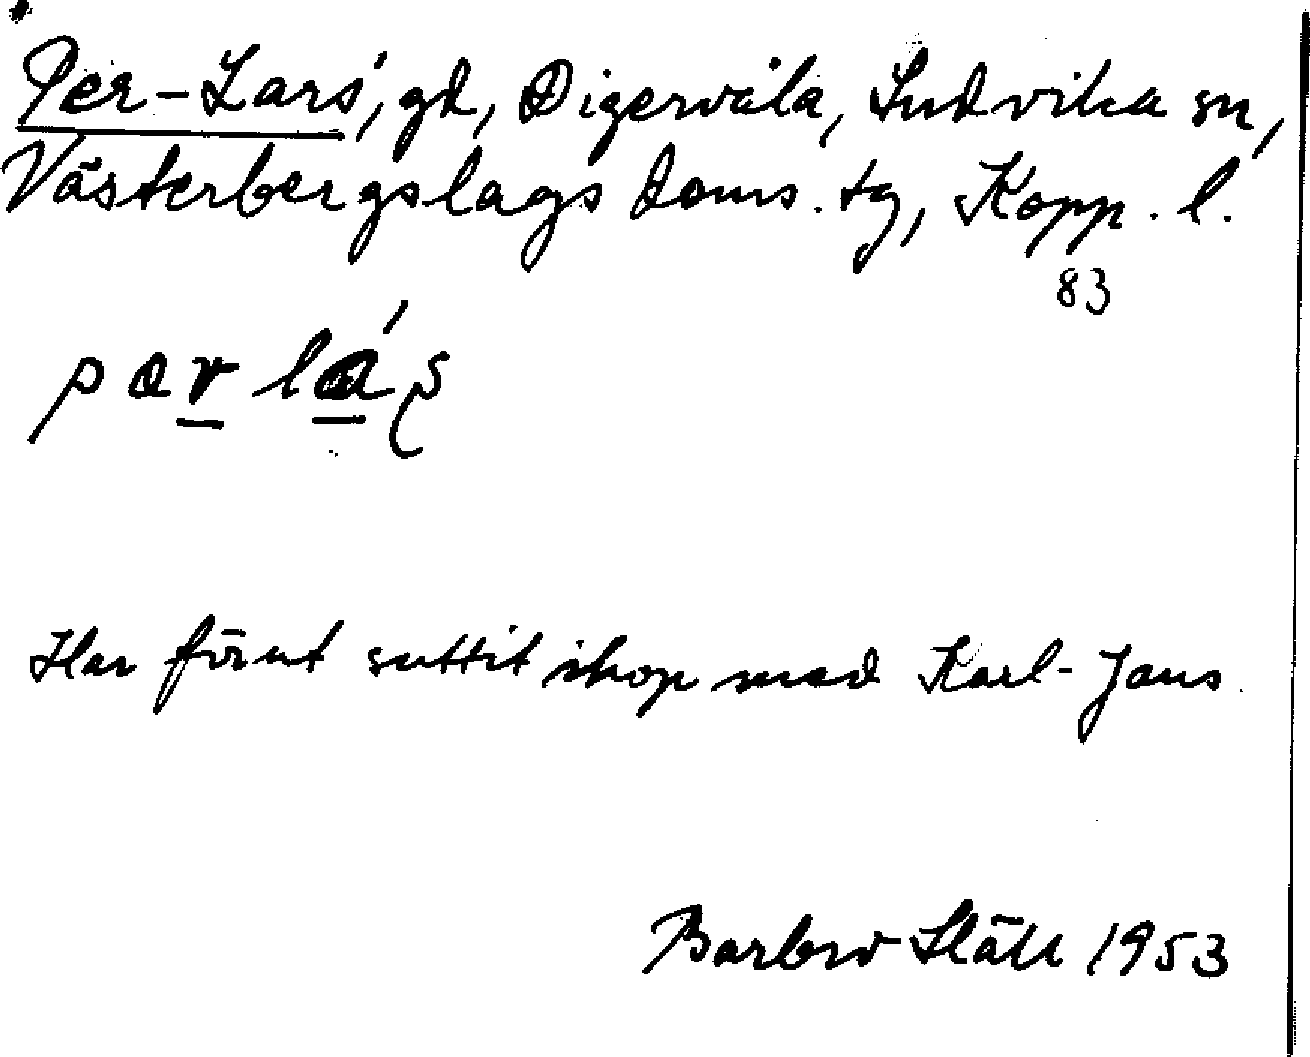 Per-Lars', gd, Digervåla, Ludvika sn,
Västerbergslags doms. tg, Kopp. l.
83
Har förut suttit ihop med Karl-Jans
Barbro Slätt 1953